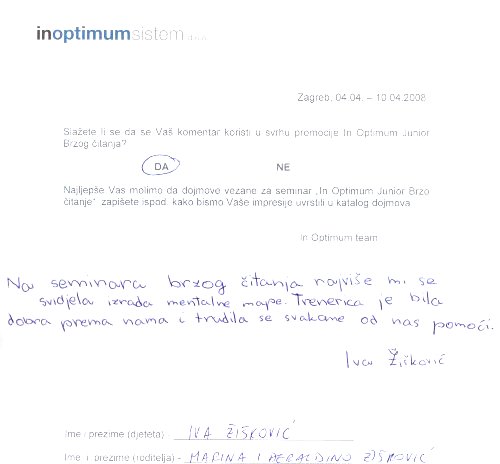 inoptimumsistem d.o.o.
Zagreb, 04.04. – 10.04.2008
Slažete li se da se Vaš komentar koristi u svrhu promocije In Optimum Junior
Brzog čitanja?
DA NE
Najljepše Vas molimo da dojmove vezane za seminar „In Optimum Junior Brzo
čitanje“ zapišete ispod, kako bismo Vaše impresije uvrstili u katalog dojmova
In Optimum team
Na seminara brzog čitanja najviše mi se
svidjela izrada mentalne mape. Trenerica je bila
dobra prema nama i trudila se svakane od nas pomoći.
Iva Žišković
Ime i prezime (djeteta) - IVA ŽIŠKOVIĆ
Ime i prezime (roditelja) - MARINA I ŽIŠKOVIĆ